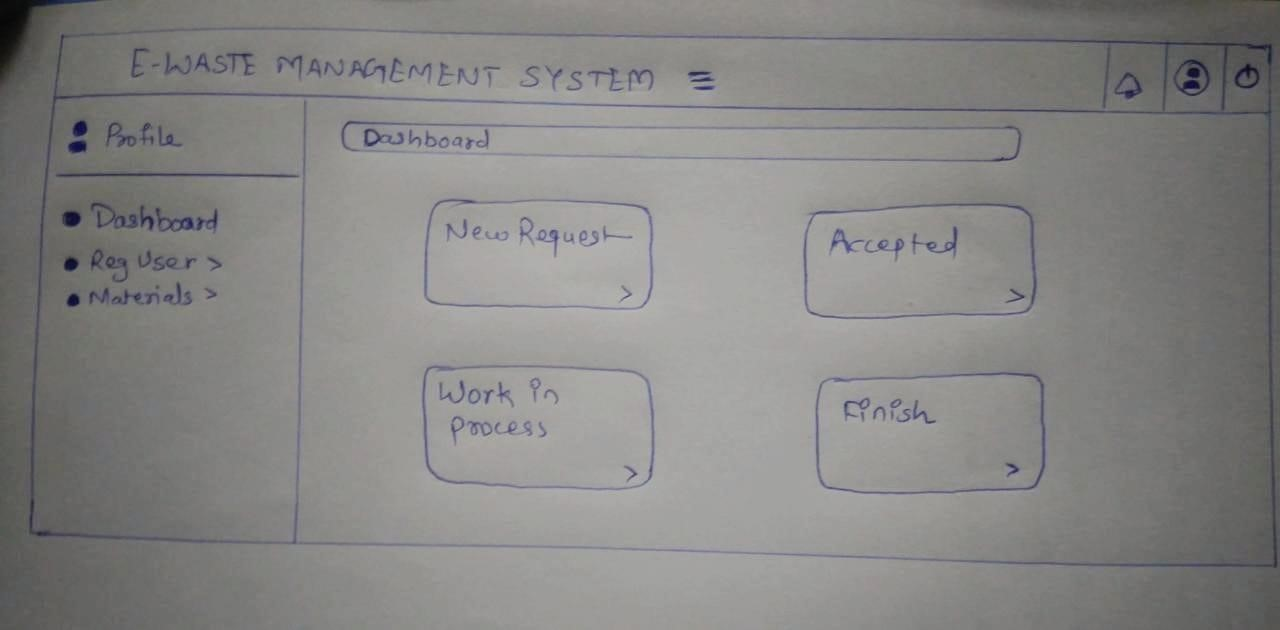 E-WASTE MANAGEMENT SYSTEM
Profile
Dashboard
Reg User >
Materials >
Dashboard
New Request
>
Accepted
>
Work in
process
>
Finish
>